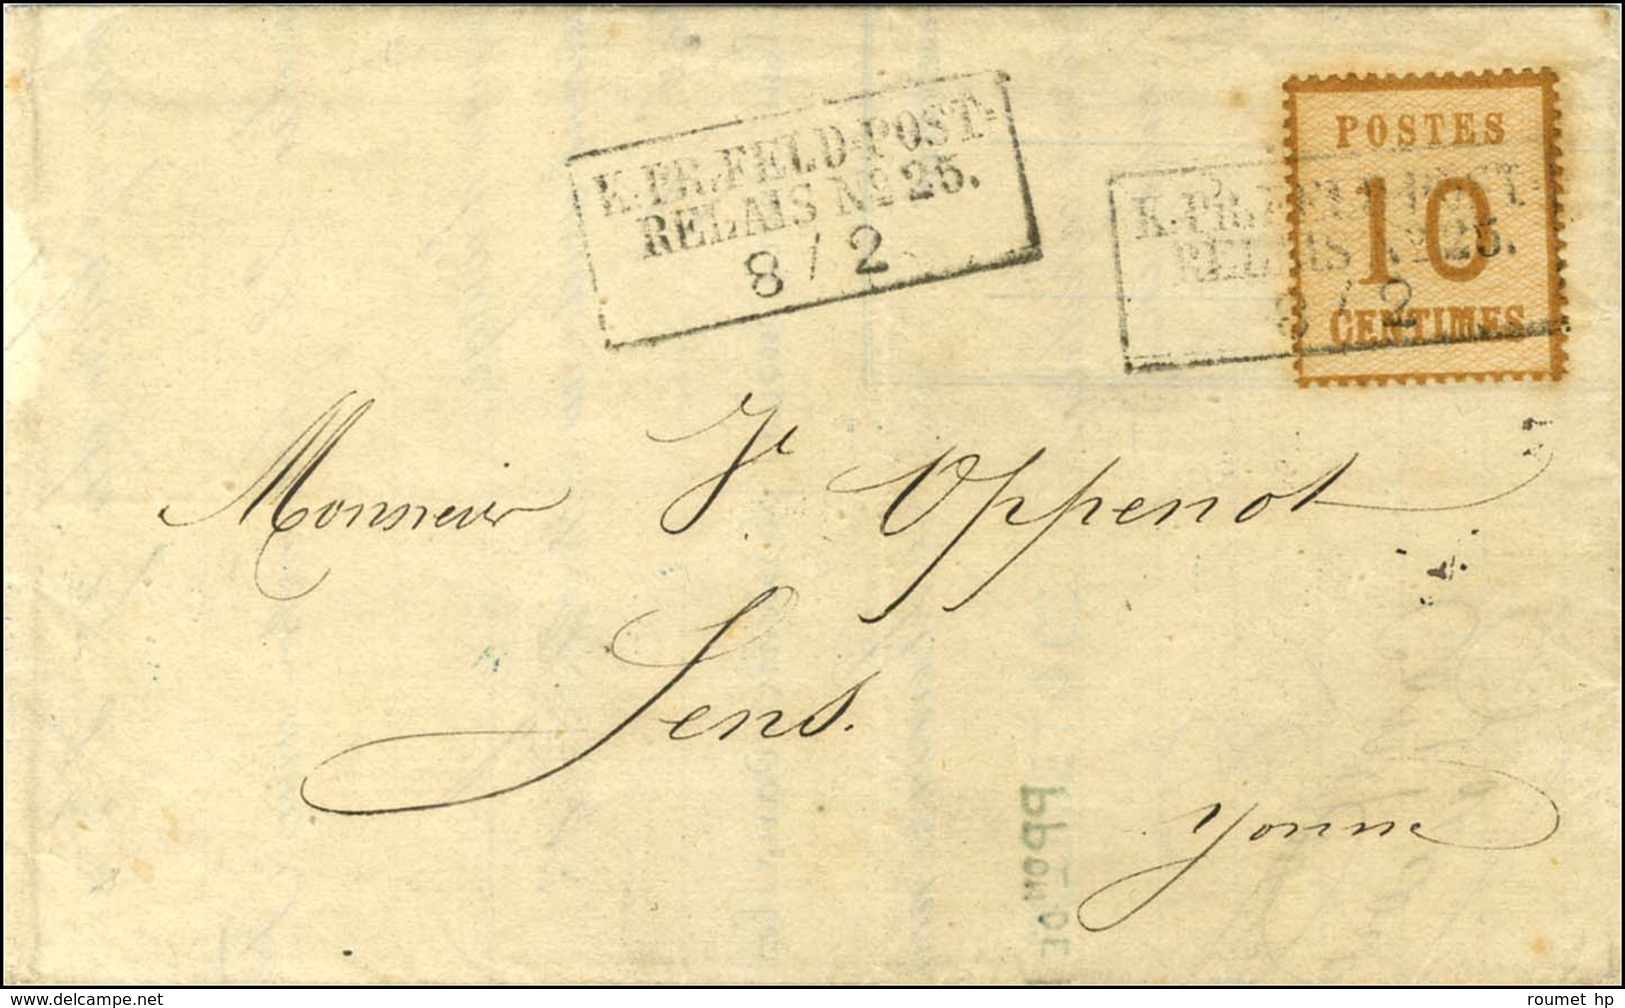 K.PR.FELD-POST-
RELAIS No 25.
8 / 2
POSTES
10
CENTIMES
K.PR.FELD-POST-
RELAIS No 25.
8 / 2
Monsieur Jt Oppenot
Sens.
Yonne
www.delcampe.net
roumet hp